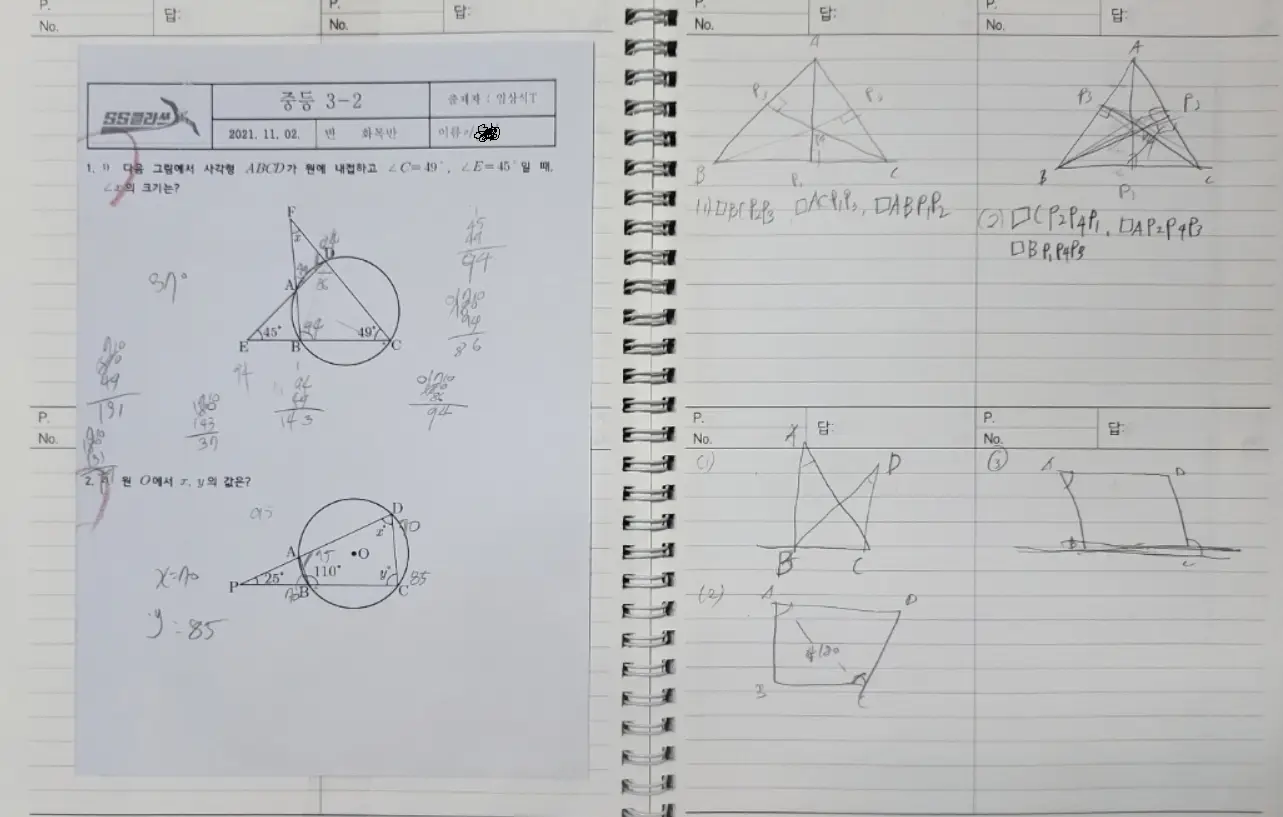 P.
No.
답:
P.
No.
답:
SS클라쓰
중등 3-2
출제자 : 임상식T
2021. 11. 02.
반 화목반
이름
1. 다음 그림에서 사각형 ABCD가 원에 내접하고 ∠C=49°, ∠E=45°일 때,
∠x의 크기는?
F
x
D
A
86
45°
94
49°
E
B
C
37°
45
49
94
180
94
86
180
49
131
94
49
143
180
143
37
180
86
94
P.
No.
2. 원 O에서 x, y의 값은?
95
D
x°
70
A
95
O
110°
25°
y°
85
P
70
B
C
x=70
y=85
P.
No.
답:
P.
No.
답:
A
P3
P2
B
P1
C
(1) □BCP2P3 □ACP1P3, □ABP1P2
A
P3
P2
B
P1
C
(2) □CP2P4P1, □AP2P4P3
□BP1P4P3
P.
No.
답:
P.
No.
답:
(1)
A
D
B
C
(2)
A
D
180
B
C
③
A
D
B
C